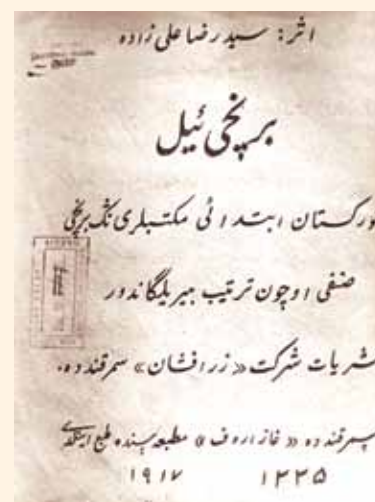 اثر: سید رضا علی زاده
برنچی ئیل
ورکستان ابتدائی مکتبلری نڭ برنچی
صنفی اوچون ترتیب بیریلگاندور
شریات شرکت «زرافشان» سمرقنده ده.
سمرقنده ده «غازاروف» مطبعه سنده طبع ایتلدی
۱۹۱۷ ۱۳۳۵